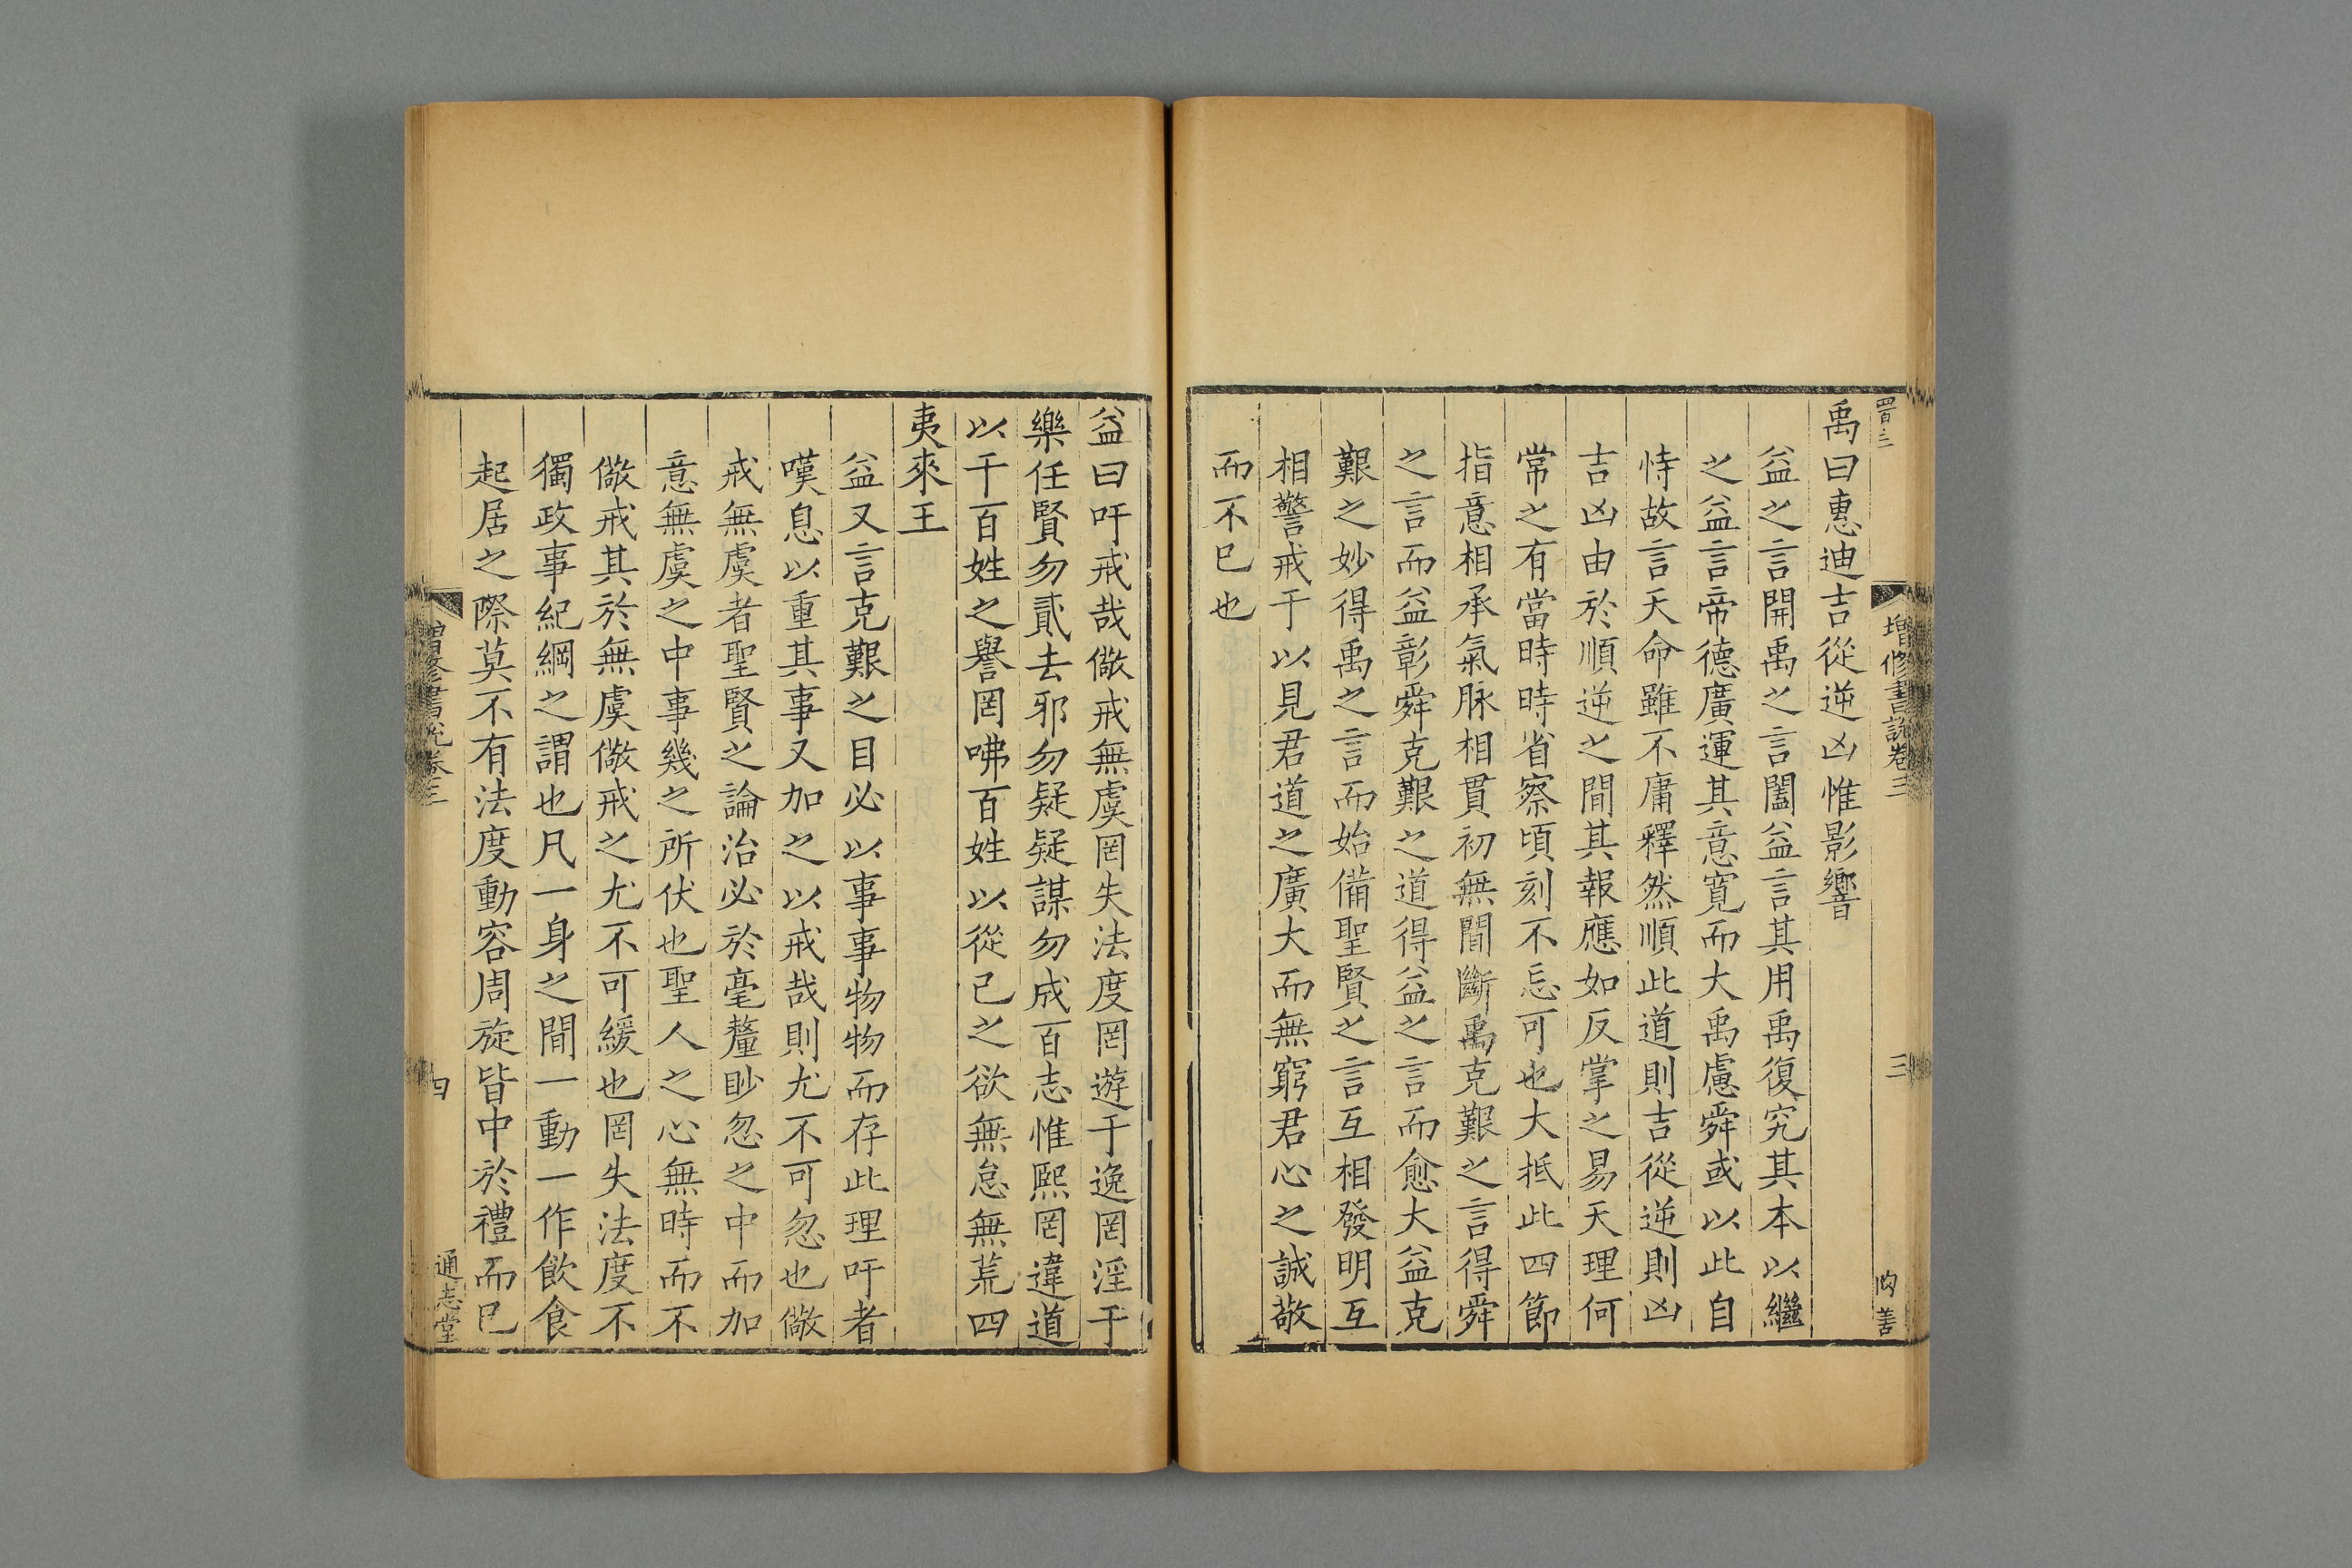 增修書說卷三
三
禹曰惠迪吉從逆凶惟影響
益之言開禹之言闔益言其用禹復究其本以繼
之益言帝德廣運其意寬而大禹慮舜或以此自
恃故言天命雖不庸釋然順此道則吉從逆則凶
吉凶由於順逆之間其報應如反掌之易天理何
常之有當時時省察頃刻不忘可也大抵此四節
指意相承氣脉相貫初無間斷禹克艱之言得舜
之言而益彰舜克艱之道得益之言而愈大益克
艱之妙得禹之言而始備聖賢之言互相發明互
相警戒于以見君道之廣大而無窮君心之誠敬
而不已也
益曰吁戒哉儆戒無虞罔失法度罔遊于逸罔淫于
樂任賢勿貳去邪勿疑疑謀勿成百志惟熙罔違道
以干百姓之譽罔咈百姓以從己之欲無怠無荒四
夷來王
益又言克艱之目必以事事物物而存此理吁者
嘆息以重其事又加之以戒哉則尤不可忽也儆
戒無虞者聖賢之論治必於毫釐眇忽之中而加
意無虞之中事幾之所伏也聖人之心無時而不
儆戒其於無虞儆戒之尤不可緩也罔失法度不
獨政事紀綱之謂也凡一身之間一動一作飲食
起居之際莫不有法度動容周旋皆中於禮而已
增修書說卷三
四
通志堂